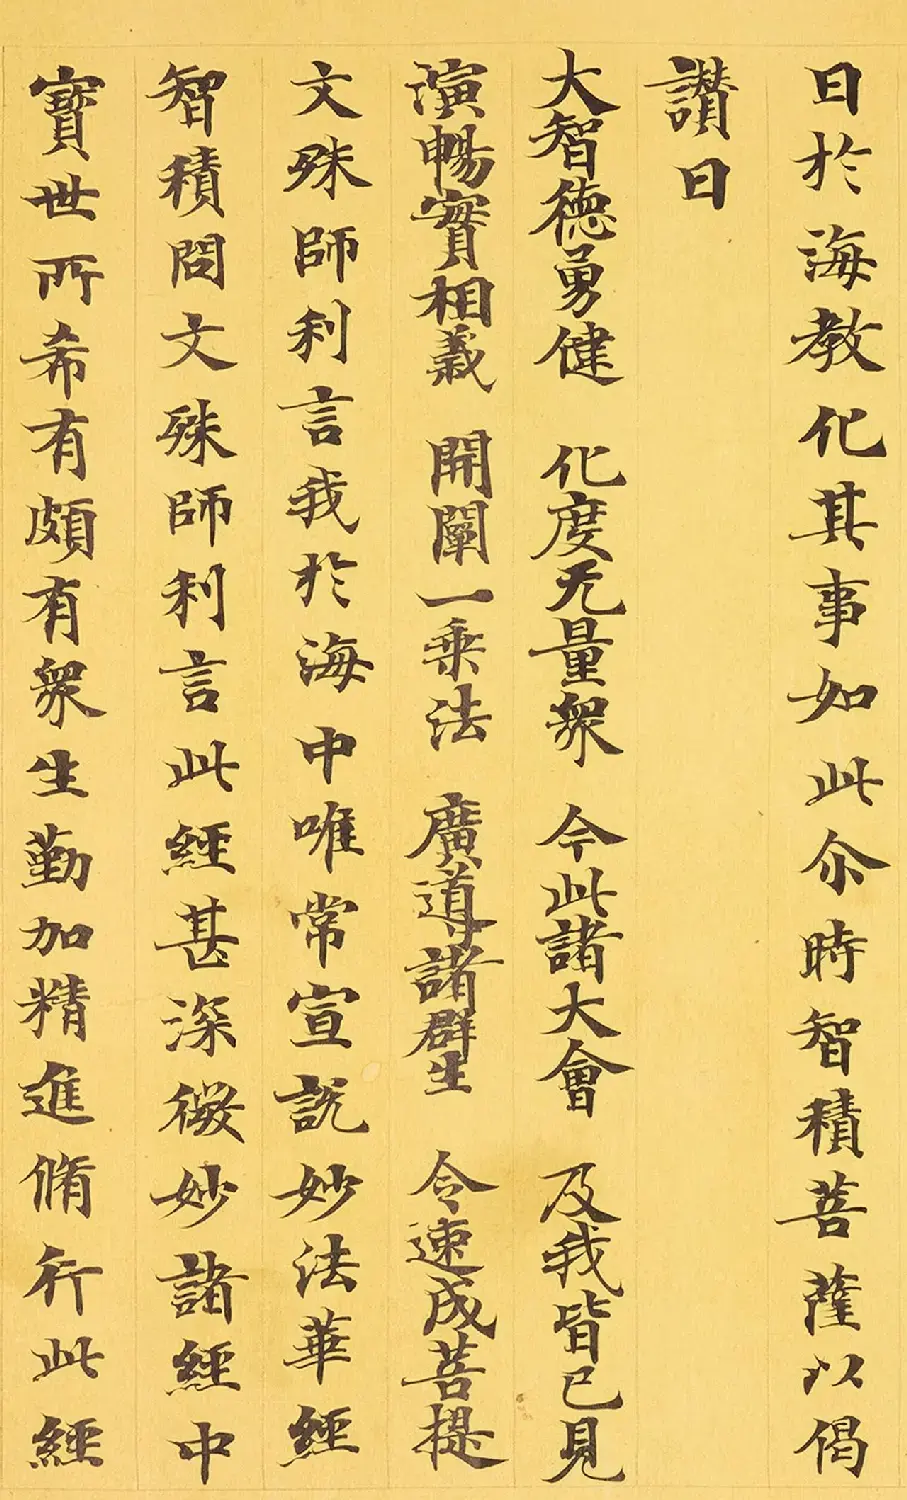 曰於海教化其事如此尒時智積菩薩以偈
讃曰
大智德勇健　化度无量衆　今此諸大會　及我皆已見
演暢實相義　開闡一乘法　廣導諸群生　令速成菩提
文殊師利言我於海中唯常宣説妙法華經
智積問文殊師利言此經甚深微妙諸經中
寶世所希有頗有衆生勤加精進脩行此經